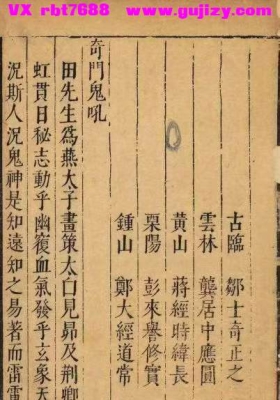 VX rbt7688   www.gujizy.com
古臨　鄒士奇正之
雲林　龔居中應圓
黃山　蔣經時緯長
栗陽　彭來譽修實
鍾山　鄭大經道常
奇門鬼吼
田先生爲燕太子畫策太白見昴及荆卿
虹貫日秘志動乎幽復血氣發乎玄象天
況斯人況鬼神是知遠知之易著而雷電